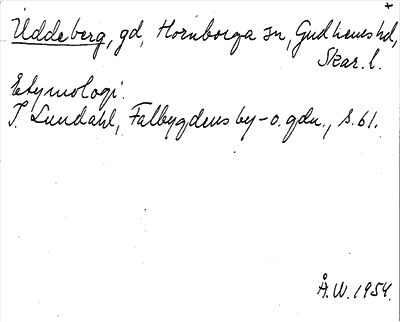 +
Uddeberg, gd, Hornborga sn, Gudhems hd,
Skar. l.
Etymologi.
I. Lundahl, Falbygdens by- o. gdn., s. 61.
Å.W. 1954.